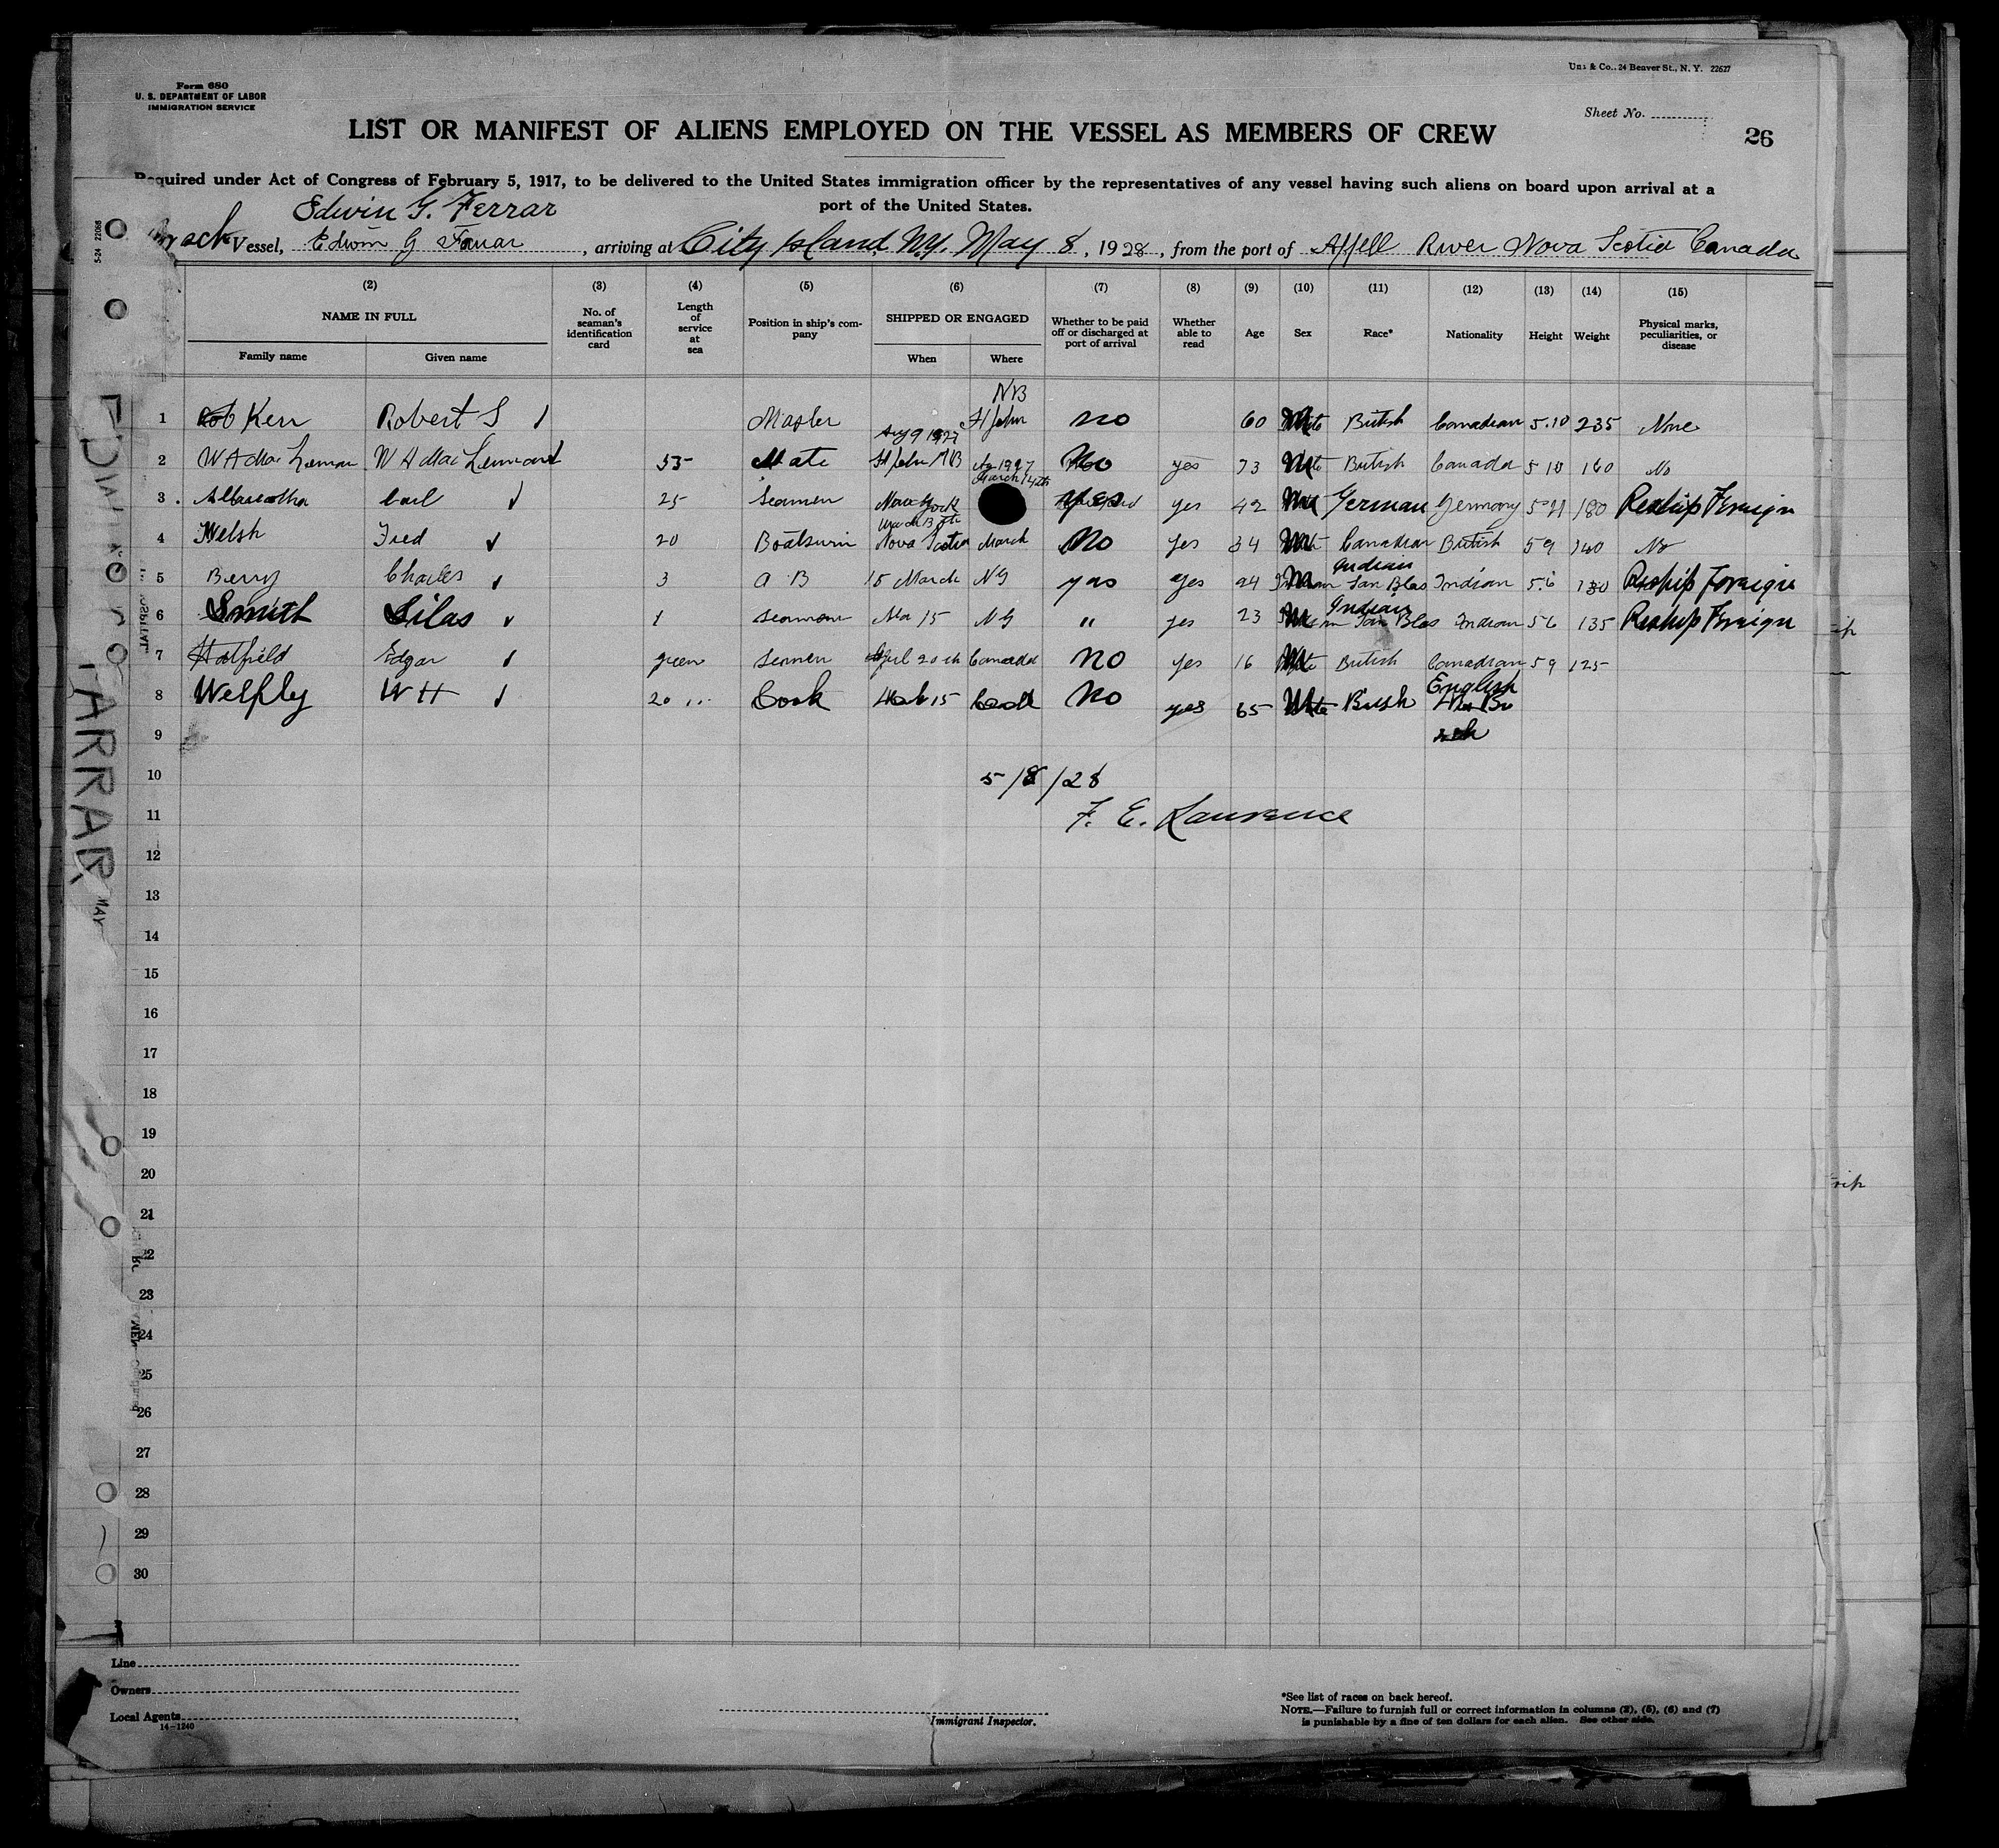 Form 680
U. S. DEPARTMENT OF LABOR
IMMIGRATION SERVICE
24 Beaver St., N. Y. 22627
Sheet No.
LIST OR MANIFEST OF ALIENS EMPLOYED ON THE VESSEL AS MEMBERS OF CREW
26
Required under Act of Congress of February 5, 1917, to be delivered to the United States immigration officer by the representatives of any vessel having such aliens on board upon arrival at a
port of the United States.
Edwin G. Ferrar
Vessel, Edwin G Farrar, arriving at City Island, N.Y. May 8, 1928, from the port of River Nova Scotia Canada
(2) (3) (4) (5) (6) (7) (8) (9) (10) (11) (12) (13) (14) (15)
NAME IN FULL
Family name Given name
No. of seaman's identification card
Length of service at sea
Position in ship's company
SHIPPED OR ENGAGED
When Where
Whether to be paid off or discharged at port of arrival
Whether able to read
Age
Sex
Race*
Nationality
Height
Weight
Physical marks, peculiarities, or disease
NB
1 Kerr Robert S Master St John No 60 M British Canadian 5.10 235 None
Aug 9 1927
2 W A Mac 55 Mate St John NB No yes 73 M British Canada 5 10 160 No
March 14th
3 Carl 25 Seamen Yes yes 42 German Germany 5 11 180 Reship Foreign
4 Welsh Fred 20 Nova Scotia March No yes 34 Canadian British 5 9 140 No
Indian
5 Berry Charles 3 A B 15 March NY yes yes 24 M San Blas Indian 5.6 130 Reship Foreign
Indian
6 Smith Silas 1 Seaman Mar 15 NY " yes 23 M San Blas Indian 5 6 135 Reship Foreign
7 Hatfield Edgar green Seamen April 20th Canada No yes 16 M British Canadian 5 9 125
English
8 Welply W H 20 " Cook 15 No yes 65 M
9
10 5/8/28
11 F. E. Laurence
12
13
14
15
16
17
18
19
20
21
22
23
24
25
26
27
28
29
30
EDWIN G FARRAR
MAY
Line
Owners
Local Agents
14-1240
Immigrant Inspector.
*See list of races on back hereof.
NOTE.—Failure to furnish full or correct information in columns (2), (5), (6) and (7)
is punishable by a fine of ten dollars for each alien. See other side.